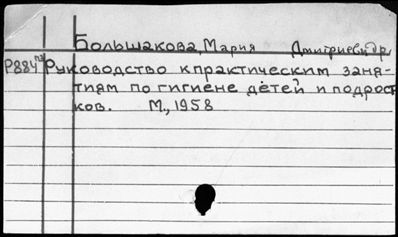 Большакова, Мария Дмитриевн др.
Р884 Руководство к практическим заня-
тиям по гигиене детей и подрост
ков. М., 1958